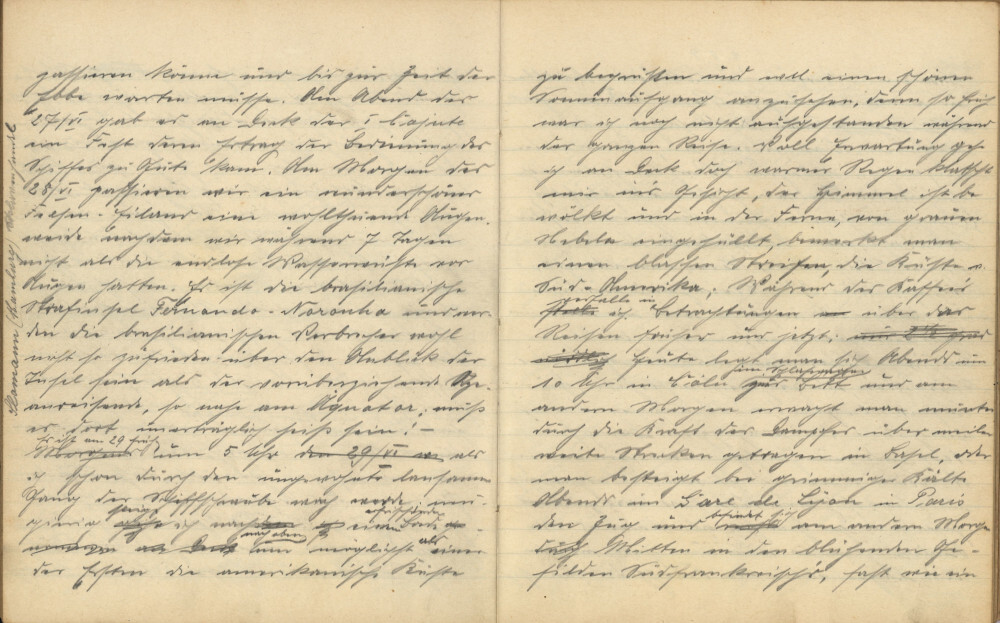 passieren könne und bis zur Zeit der
Ebbe warten müsse. Am Abend des
27/VI gab es an Deck der I Cajüte
ein Fest deren Ertrag der Bemannung des
Schiffes zu Gute kam. Am Morgen des
28/VI passieren wir ein wunderschönes
Felsen-Eiland eine wohlthuende Augen-
weide nachdem wir während 7 Tagen
nicht als die endlose Wasserwüste vor
Augen hatten. Es ist die brasilianische
Strafinsel Fernando-Noronha und wer-
den die brasilianischen Verbrecher wohl
nicht so zufrieden über den Anblick der
Insel sein als der vorüberziehende
so nahe am Äquator, muß
es dort unerträglich heiß sein! –
Es ist am 29 früh
Morgens um 5 Uhr den 29/VI als
ich schon durch den ungewohnt langsamen
Gang der Schiffschraube wach werde, neu-
gierig steige ich nach
nach oben um möglichst als einer
der Ersten die amerikanische Küste
Slomann (Hamburg
zu begrüßen und evtl. einen schönen
Sonnenaufgang anzusehen, denn so früh
war ich noch nicht aufgestanden während
der ganzen Reise. Voll Erwartung gehe
ich an Deck doch warmer Regen klatscht
mir ins Gesicht, der Himmel ist be
wölkt und in der Ferne, von grauen
Nebeln eingehüllt, bemerkt man
einen blassen Streifen, die Küste v.
Süd-Amerika. Während des Kaffee's
verfalle in
ich Betrachtungen über das
Reisen früher und jetzt.
Heute legt man sich Abends um
im Schlafwagen
10 Uhr in Cöln zu Bett und am
andern Morgen erwacht man munter
durch die Kraft des Dampfes über meilen
weite Strecken getragen in Basel, oder
man besteigt bei grimmiger Kälte
Abends im Gare de Lion in Paris
befindet sich
den Zug und am andern Morge
Mitten in den blühenden Ge-
filden Südfrankreich's, fast wie ein